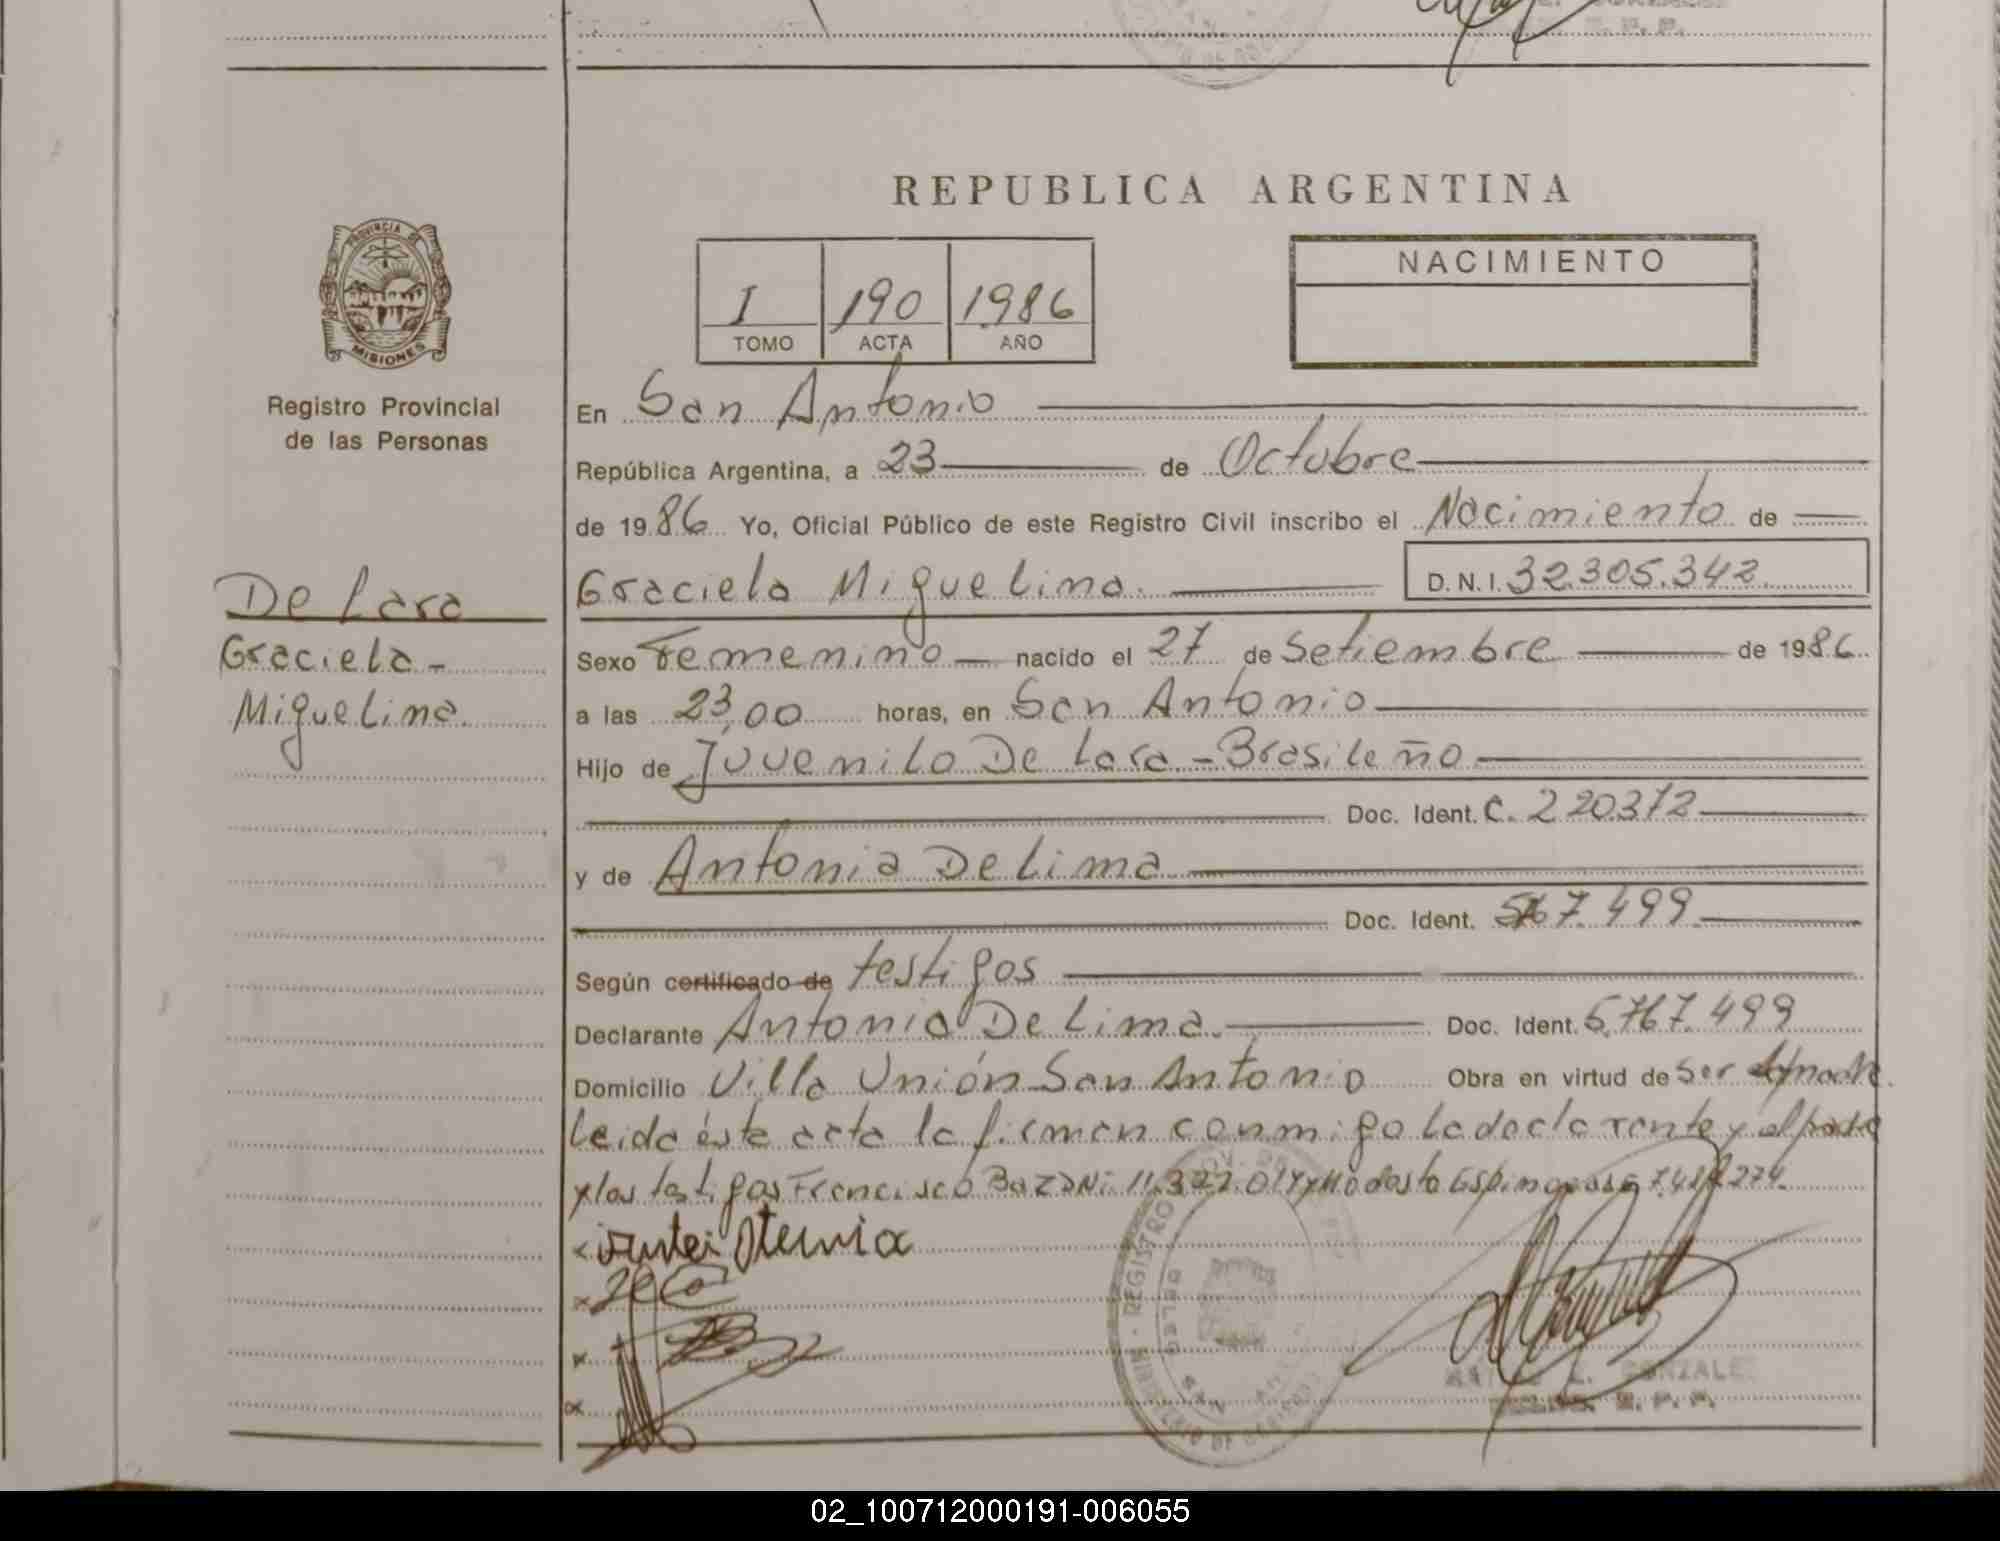 REPUBLICA ARGENTINA
PROVINCIA DE
MISIONES
Registro Provincial
de las Personas
I 190 1986
TOMO ACTA AÑO
NACIMIENTO
En San Antonio
República Argentina, a 23 de Octubre
de 1986 Yo, Oficial Público de este Registro Civil inscribo el Nacimiento de
De Lara
Graciela Miguelina. D.N.I. 32.305.342
Graciela -
Miguelina.
Sexo Femenino nacido el 27 de Setiembre de 1986.
a las 23,00 horas, en San Antonio
Hijo de Juvenilo De Lara - Brasileño
Doc. Ident. C. 220372
y de Antonia De Lima
Doc. Ident. 767.499
Según certificado de testigos
Declarante Antonia De Lima. Doc. Ident. 5.767.499
Domicilio Villa Unión San Antonio Obra en virtud de ser madre.
Leida ésta acta la firman conmigo la declarante y el padre
y los testigos Francisco Bazani 11.322.019 y Modesto
GONZALEZ
02_100712000191-006055